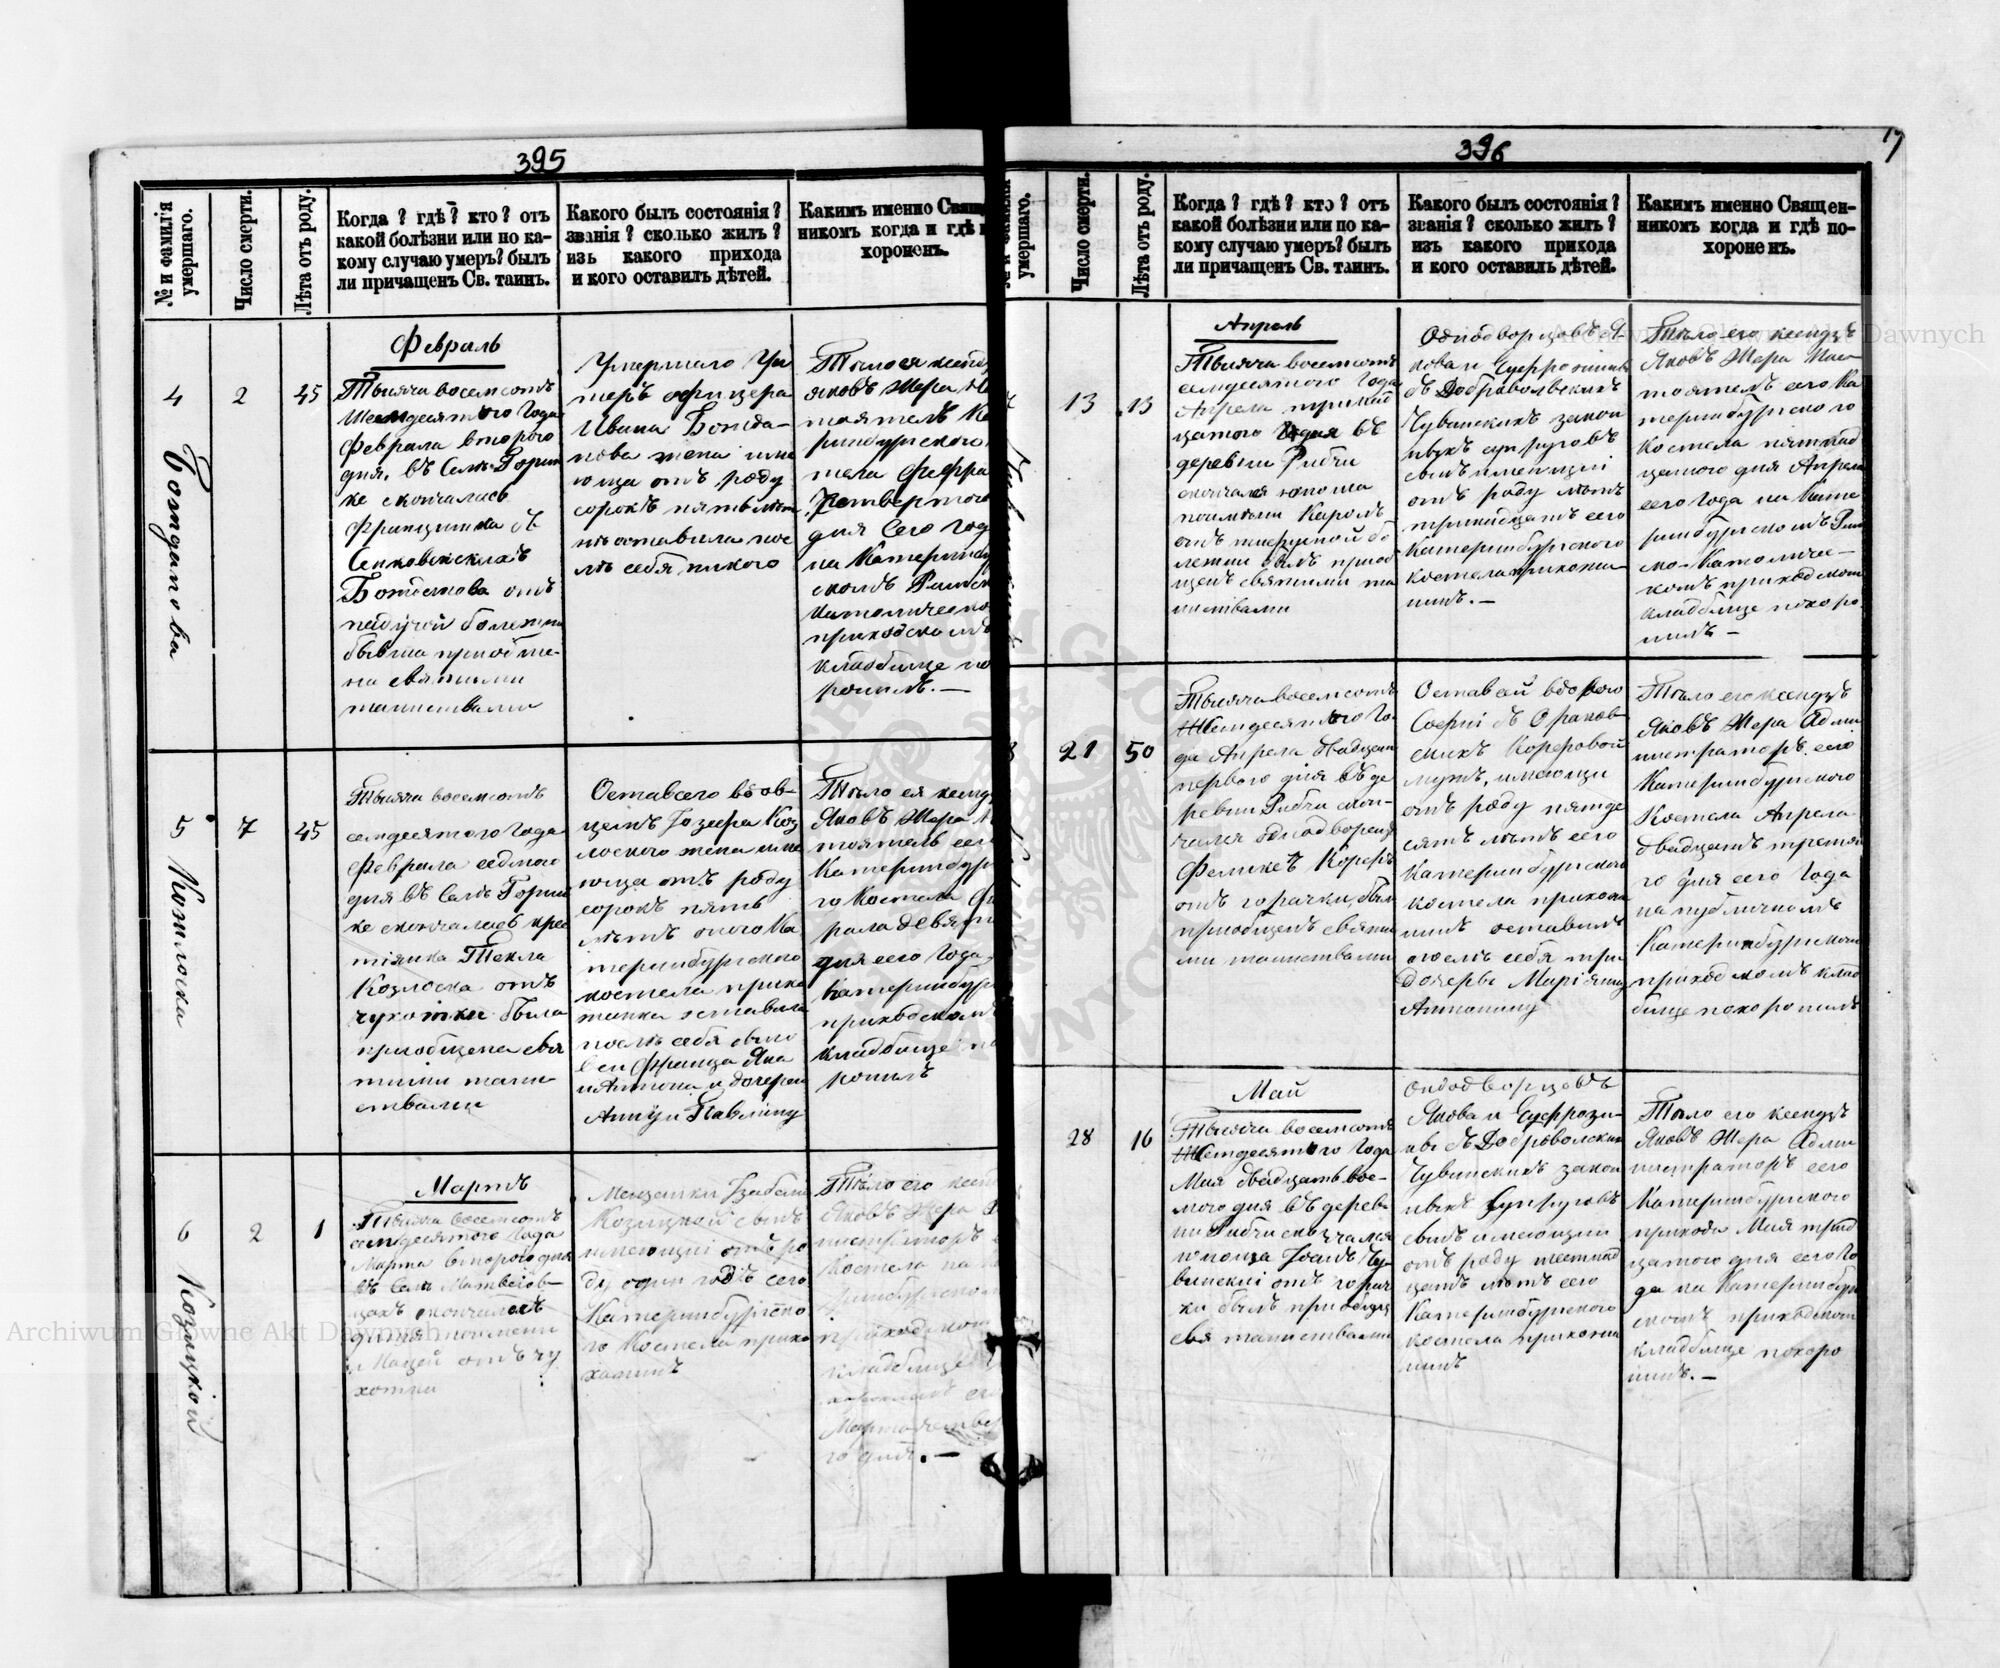 395
№ и фамилія умершаго.
Число смерти.
Лѣта отъ роду.
Когда? гдѣ? кто? отъ
какой болѣзни или по ка-
кому случаю умеръ? былъ
ли причащенъ Св. таинъ.
Какого былъ состоянія?
званія? сколько жилъ?
изъ какого прихода
и кого оставилъ дѣтей.
Какимъ именно Свящ
никомъ когда и гдѣ п
хороненъ.
4
2
45
Февраль
Тысяча восемсотъ
семдесятого Года
Февраля второго
дня, въ Селѣ Горин
ке скончалась
Францишка съ
Божданова отъ
падучой болезни
бывша приобще-
на святыми
таинствами
Умершаго Ун
теръ офицера
Ивана Божда-
нова жена име
юща отъ роду
сорокъ пять лѣт
не оставила пос
лѣ себя никого
Тѣло ея ксенд
Яковъ Жера На
тоятель Ка
ринбургского
Четвертого
дня сего Год
на Катеринбур
скомъ Римск
католическо
приходскомъ
кладбище по
ронилъ. —
5
7
45
Тысяча восемсотъ
семдесятого Года
Февраля седмого
дня въ Селѣ Горин
ке скончалась крес
тіянка Текла
Козлоска отъ
чухотки была
приобщена свя
тыми таин
ствами
Оставсего вдов-
цемъ Іозефа Коз
лоского жена име
юща отъ роду
сорокъ пять
лѣтъ оного Ка
теринбургского
костела прихо
жанка оставила
послѣ себя сыно
веи Франца Яна
и Антона и дочереи
Анну и Павлину
Тѣло ея ксендз
Яковъ Жера На
тоятель сег
Катеринбург
го Костела Фев
раля девято
дня сего Года
Катеринбур
приходскомъ
кладбище по
ронилъ
6
2
1
Козицкой
Мартъ
Тысяча восемсотъ
семдесятого Года
Марта второго дня
въ Селѣ Матвеіов-
цахъ скончалось
дитя поимени
Мацей отъ чу
хотки
Мещанки Изабели
Козицкой сынъ
имеющиі отъ ро
ду один годъ сего
Катеринбургско
го Костела прихо
жанинъ
Тѣло его ксен
Яковъ Жера А
нистраторъ
Костела на Ка
ринбургском
приходском
кладбище
Марта четвер
го дня. —
396
17
умершаго.
Число смерти.
Лѣта отъ роду.
Когда? гдѣ? кто? отъ
какой болѣзни или по ка-
кому случаю умеръ? былъ
ли причащенъ Св. таинъ.
Какого былъ состоянія?
званія? сколько жилъ?
изъ какого прихода
и кого оставилъ дѣтей.
Какимъ именно Священ-
никомъ когда и гдѣ по-
хороненъ.
13
13
Апрель
Тысяча восемсотъ
семдесятого Года
Апреля тринад
цатого дня въ
деревни Рибчи
скончался юноша
поимени Кароль
отъ болезни былъ приоб
щенъ святыми та
инствами
Однодворцовъ Я
кова и Еуфрозини
съ Добровольскихъ
Чувинскихъ закон
ныхъ супруговъ
сынъ имеющиі
отъ роду лѣтъ
тринадцать сего
Катеринбургского
костела прихожа
нинъ. —
Тѣло его ксендзъ
Яковъ Жера Нас
тоятель сего Ка
теринбургского
Костела пятнад
цатого дня Апреля
сего Года на Кате
ринбургскомъ Рим
ско-Католичес-
комъ приходском
кладбище похоро
нилъ —
21
50
Тысяча восемсотъ
семдесятого Го
да Апреля двадцать
первого дня въ де
ревни Рибчи скон-
чался однодворецъ
Феликсъ Корефъ
отъ горачки, былъ
приобщенъ святы
ми таинствами
Оставсей вдового
Софиі съ Ораков-
скихъ Кореровой
мужъ, имеющи
отъ роду пятде
сятъ лѣтъ сего
Катеринбургского
костела прихожа
нинъ оставилъ
послѣ себя три
дочеры Маріянну
Антонину
Тѣло его ксендзъ
Яковъ Жера Адми
нистраторъ сего
Катеринбургского
Костела Апреля
двадцать третя
го дня сего Года
на публичномъ
Катеринбургском
приходскомъ клад
бище похоронилъ
28
16
Май
Тысяча восемсотъ
семдесятого Года
Мая двадцать вос-
мого дня въ дерев-
ни Рибчи скончался
юноша Іоанъ Чу-
винскиі отъ горач
ки былъ приобщ
свя таинствами
Однодворцевъ
Якова и Еуфрози-
ны съ Добровольских
Чувинскихъ закон
ныхъ Супруговъ
сынъ имеющиі
отъ роду шестнад
цать лѣтъ сего
Катеринбургского
костела прихожа
нинъ
Тѣло его ксендзъ
Яковъ Жера Адми
нистраторъ сего
Катеринбургского
прихода Мая трид
цатого дня сего Го
да на Катеринбург
скомъ приходском
кладбище похоро
нилъ. —
Archiwum Główne Akt Dawnych
Archiwum Główne Akt Dawnych